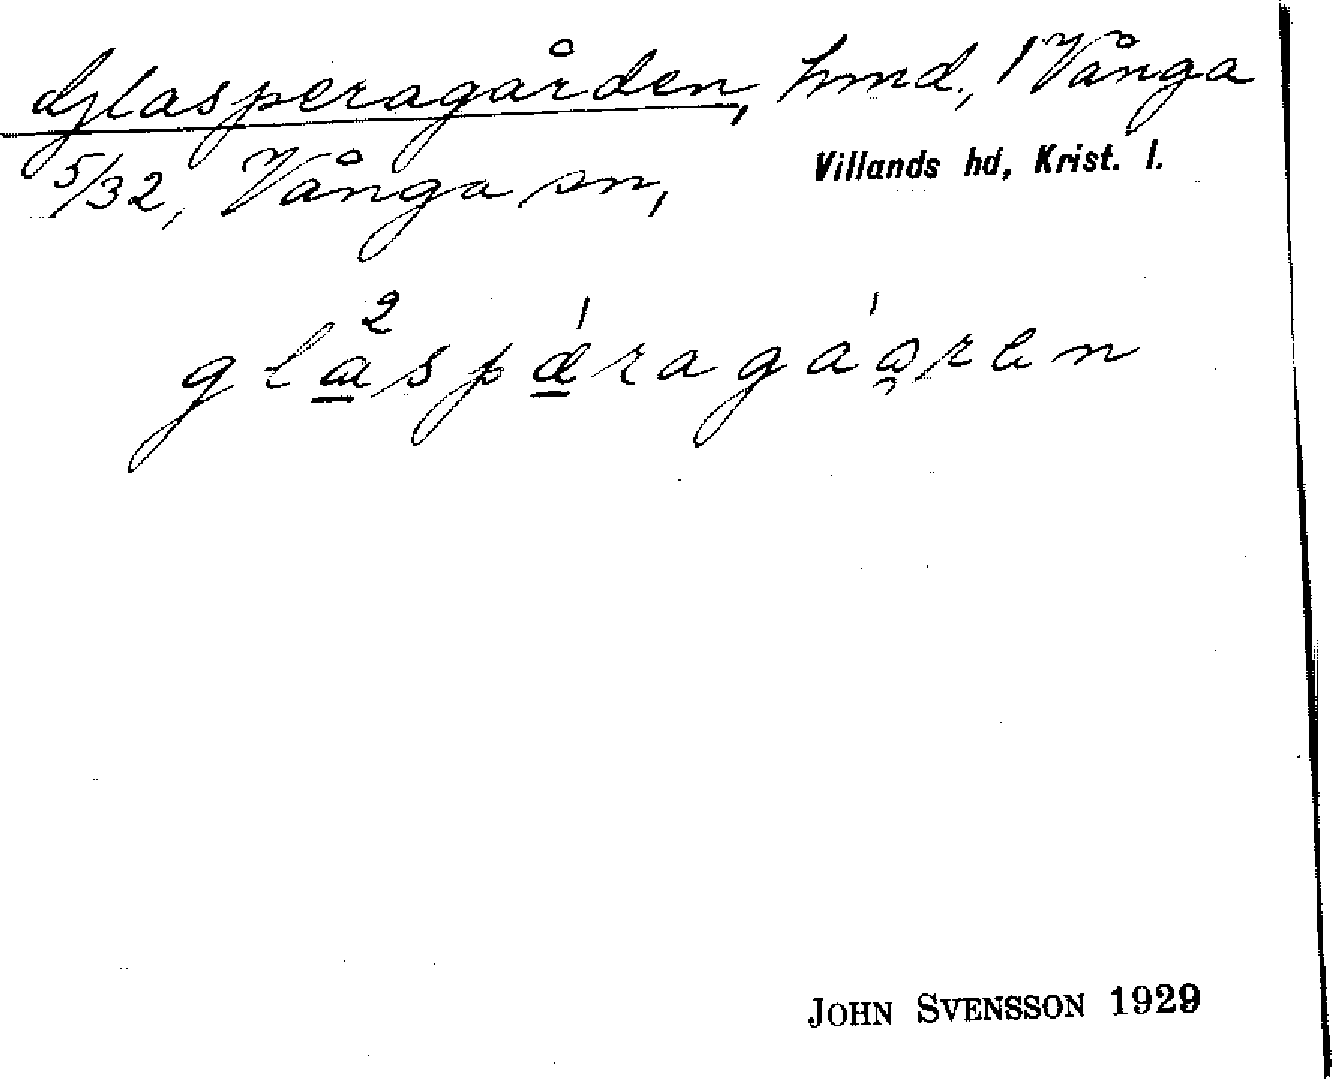 Glasperagården, hmd., 1 Vånga
5/32, Vånga sn, Villands hd, Krist. l.
JOHN SVENSSON 1929